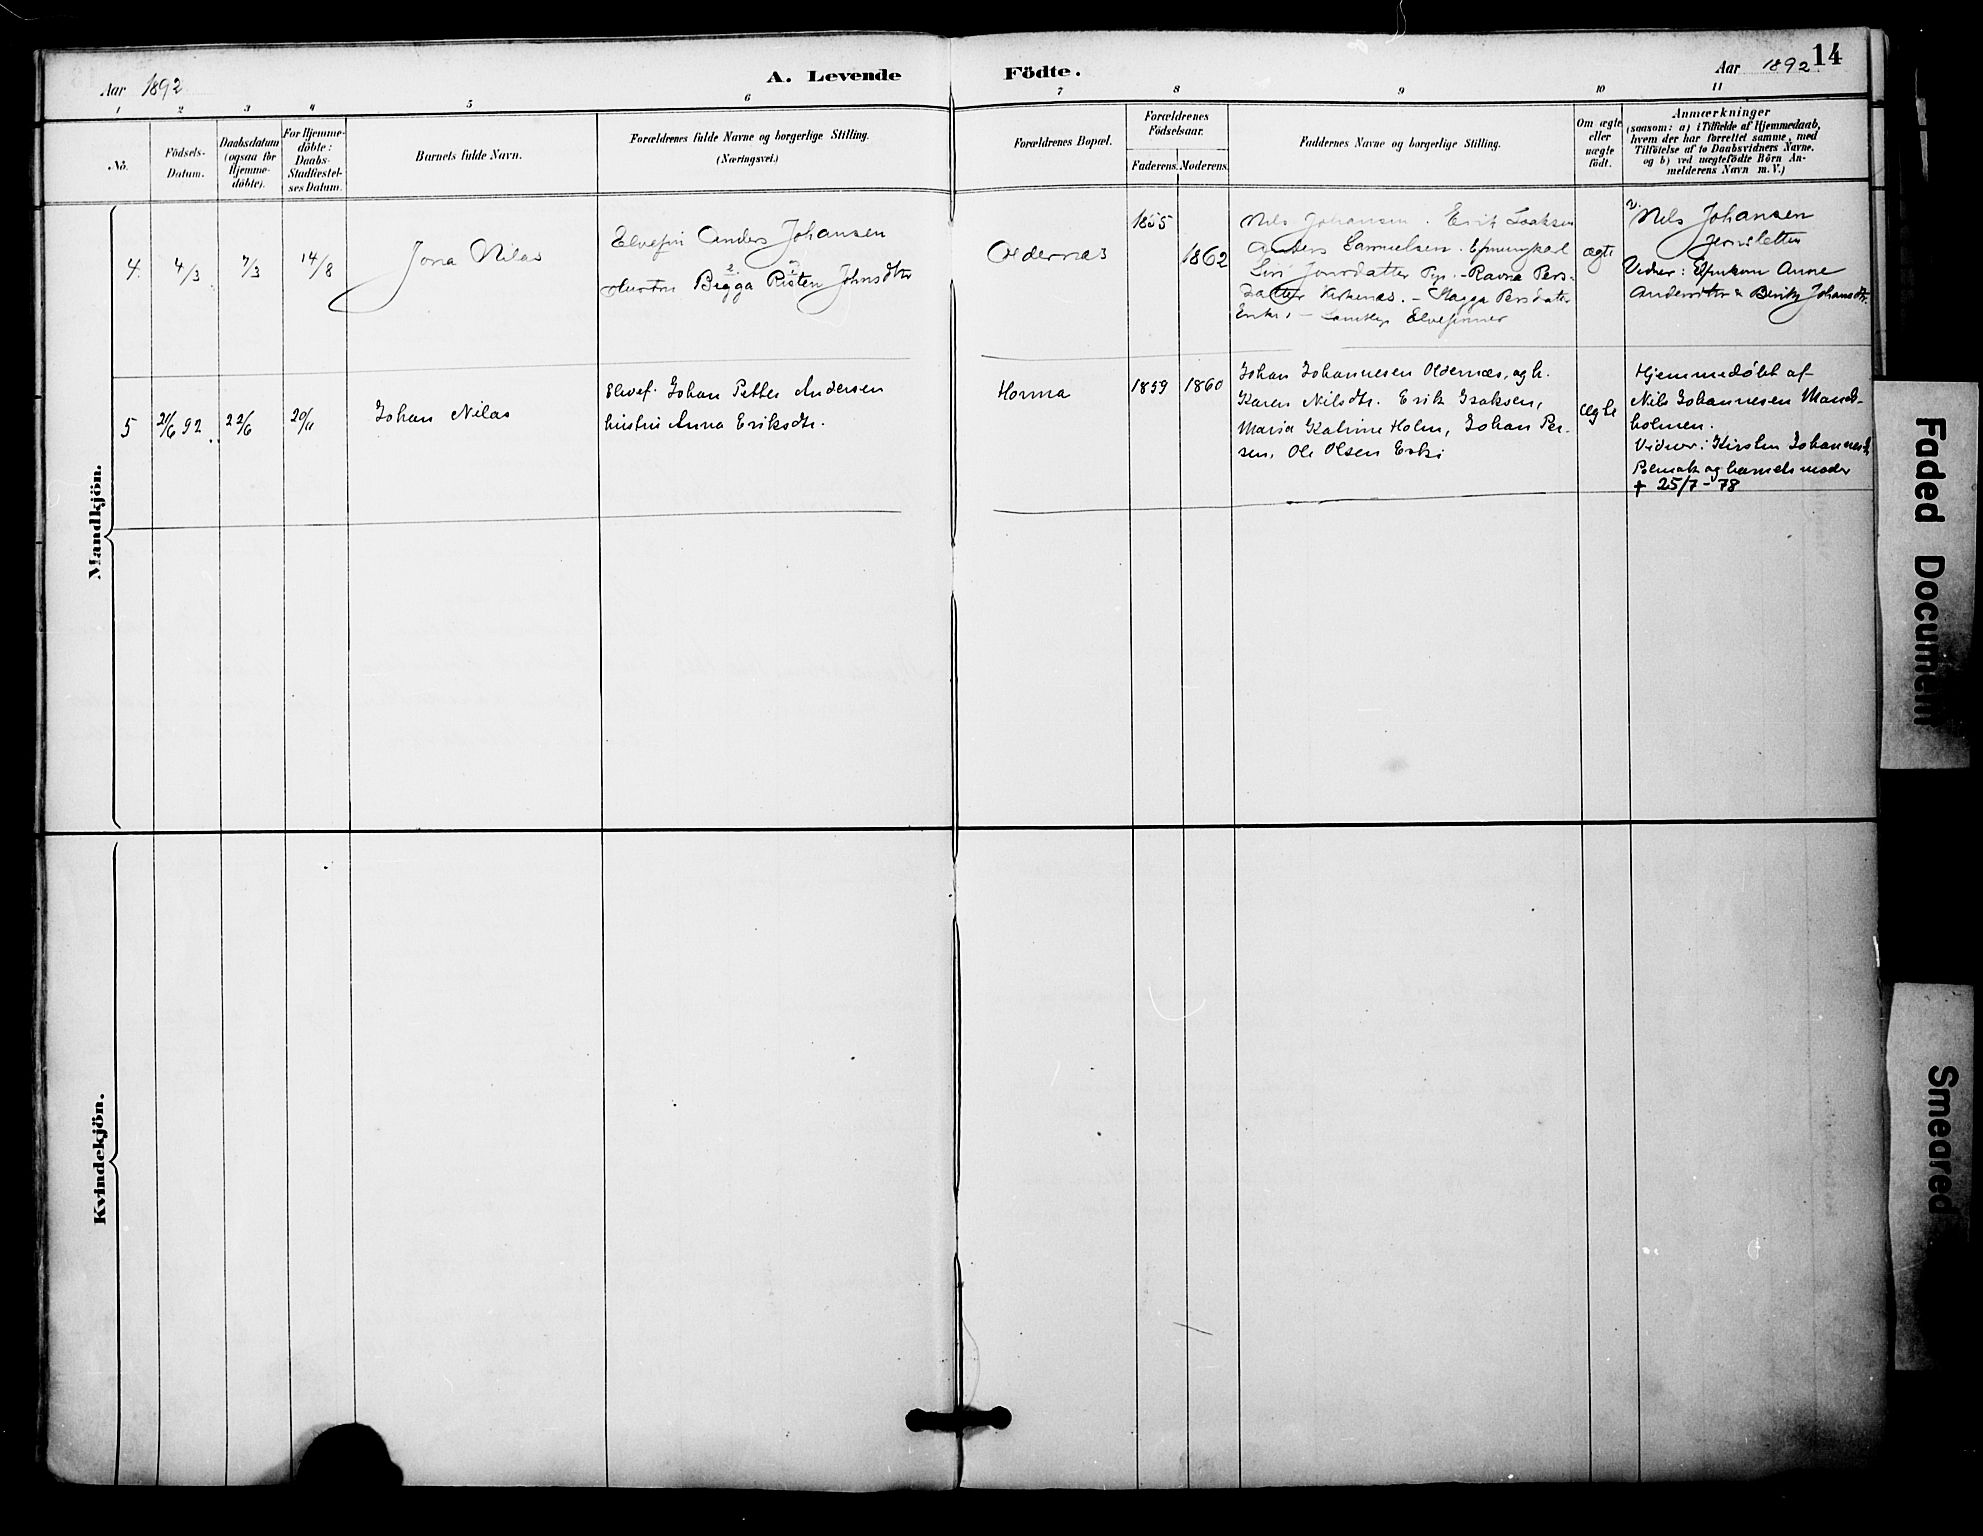 14
Aar 1892
A. Levende Födte.
Aar 1892
1 2 3 4 5 6 7 8 9 10 11
No.
Födsels-
Datum.
Daabsdatum
(ogsaa for
Hjemme-
döbte).
For Hjemme-
döbte:
Daabs-
Stadfæstel-
ses Datum.
Barnets fulde Navn.
Forældrenes fulde Navne og borgerlige Stilling.
(Næringsvei.)
Forældrenes Bopæl.
Forældrenes
Födselsaar.
Faderens. Moderens.
Faddernes Navne og borgerlige Stilling.
Om ægte
eller
uægte
født.
Anmærkninger
(saasom: a) i Tilfælde af Hjemmedaab,
hvem der har forrettet samme, med
Tilföielse af to Daabsvidners Navne.
og b) ved uægtefödte Börn An-
melderens Navn m. V.)
Mandkjön.
4. 4/3 7/3 14/8
Jona Nilas
Elvefin Anders Johansen
Hustru Begga Risten Johnsdtr
Oldernæs
1855
1862
Nils Johansen. Erik Isaksen
Anders Samuelsen.
Siri Jonsdatter - Ravna Pers-
datter Kirkenæs. - Magga Persdatter
- Samtlige Elvefinner
ægte
Nels Johansen
Vidner: Anne
Andersdtr & Berit Johansdtr.
5 20/6 92. 22/6
Johan Nilas
Elvef. Johan Petter Andersen
hustru Anna Eriksdtr.
Horma
1859 1860
Johan Johannesen Oldernæs, og h.
Karen Nilsdtr. Erik Isaksen,
Maria Katrine Holm, Johan Per-
sen, Ole Olsen
ægte
Hjemmedøbt af
Nils Johannesen
holmen.
Vidner: Kirsten
Polmak og barnets moder
† 25/7-78
Kvindekjön.
Faded Document
Smeared